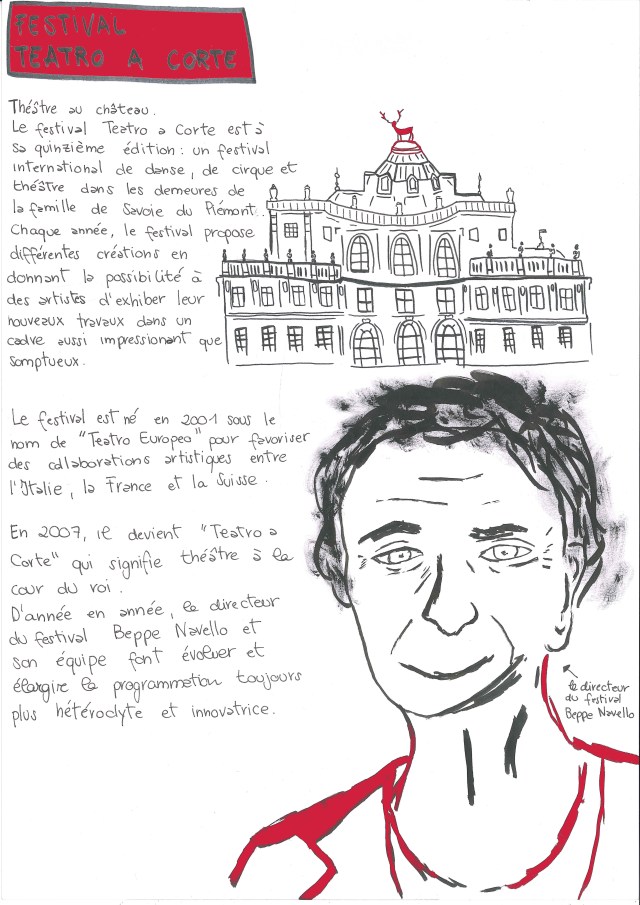 FESTIVAL
TEATRO A CORTE
Théâtre au château.
Le festival Teatro a Corte est à
sa quinzième édition : un festival
international de danse, de cirque et
théâtre dans les demeures de
la famille de Savoie du Piémont.
Chaque année, le festival propose
différentes créations en
donnant la possibilité à
des artistes d'exhiber leur
nouveaux travaux dans un
cadre aussi impressionant que
somptueux.
Le festival est né en 2001 sous le
nom de "Teatro Europeo" pour favoriser
des collaborations artistiques entre
l'Italie, la France et la Suisse.
En 2007, il devient "Teatro a
Corte" qui signifie théâtre à la
cour du roi.
D'année en année, le directeur
du festival Beppe Navello et
son équipe font évoluer et
élargire la programmation toujours
plus hétéroclyte et innovatrice.
le directeur
du festival
Beppe Navello